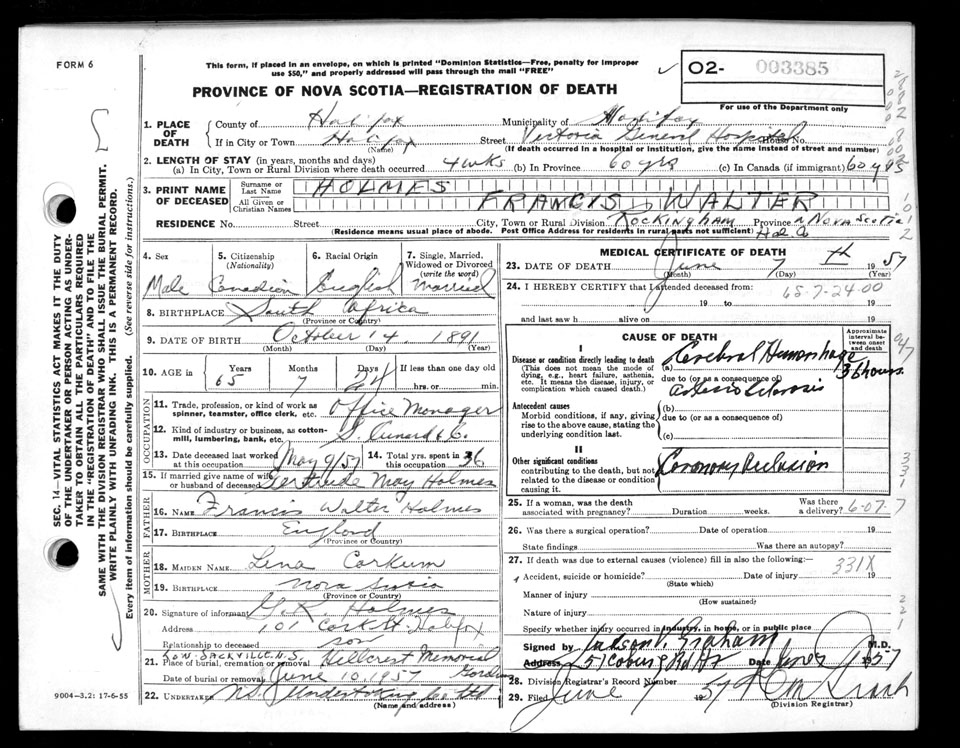 FORM 6
This form, if placed in an envelope, on which is printed "Dominion Statistics—Free, penalty for improper
use $50," and properly addressed will pass through the mail "FREE"
PROVINCE OF NOVA SCOTIA—REGISTRATION OF DEATH
02- 003385
For use of the Department only
SEC. 14—VITAL STATISTICS ACT MAKES IT THE DUTY
OF THE UNDERTAKER OR PERSON ACTING AS UNDER-
TAKER TO OBTAIN ALL THE PARTICULARS REQUIRED
IN THE "REGISTRATION OF DEATH" AND TO FILE THE
SAME WITH THE DIVISION REGISTRAR WHO SHALL ISSUE THE BURIAL PERMIT.
WRITE PLAINLY WITH UNFADING INK. THIS IS A PERMANENT RECORD.
Every item of information should be carefully supplied. (See reverse side for instructions.)
1. PLACE OF DEATH County of Halifax Municipality of Halifax
If in City or Town Halifax (Name) Street Victoria General Hospital House No.
(If death occurred in a hospital or institution, give the name instead of street and number)
2. LENGTH OF STAY (in years, months and days)
(a) In City, Town or Rural Division where death occurred 4 wks (b) In Province 60 yrs (c) In Canada (if immigrant) 60 yrs
3. PRINT NAME OF DECEASED Surname or Last Name HOLMES
All Given or Christian Names FRANCIS WALTER
RESIDENCE No. Street City, Town or Rural Division Rockingham Province Nova Scotia
(Residence means usual place of abode. Post Office Address for residents in rural parts not sufficient) Hal. Co
4. Sex 5. Citizenship (Nationality) 6. Racial Origin 7. Single, Married, Widowed or Divorced (write the word)
Male Canadian English Married
8. BIRTHPLACE South Africa
(Province or Country)
9. DATE OF BIRTH October 14 1891
(Month) (Day) (Year)
10. AGE in Years Months Days If less than one day
65 7 24 hrs. or min.
OCCUPATION
11. Trade, profession, or kind of work as spinner, teamster, office clerk, etc. Office Manager
12. Kind of industry or business, as cotton-mill, lumbering, bank, etc. S. Cunard & Co.
13. Date deceased last worked at this occupation May 9/57 14. Total yrs. spent in this occupation 36
15. If married give name of wife or husband of deceased Gertrude May Holmes
FATHER
16. NAME Francis Walter Holmes
17. BIRTHPLACE England
(Province or Country)
MOTHER
18. MAIDEN NAME Lena Corkum
19. BIRTHPLACE Nova Scotia
(Province or Country)
20. Signature of informant G. R. Holmes
Address 101 Cork St. Halifax
Relationship to deceased son
LOW. SACKVILLE N.S.
21. Place of burial, cremation or removal Hillcrest Memorial
Date of burial or removal June 10, 1957
22. UNDERTAKER N.S. Undertaking Co Ltd
(Name and address)
9004—3.2: 17-6-55
MEDICAL CERTIFICATE OF DEATH
23. DATE OF DEATH June 7 th 1957
(Month) (Day) (Year)
24. I HEREBY CERTIFY that I attended deceased from 65-7-24-00
19 to 19
and last saw h alive on 19
CAUSE OF DEATH
Approximate interval between onset and death
I
Disease or condition directly leading to death
(This does not mean the mode of dying, e.g., heart failure, asthenia, etc. It means the disease, injury, or complication which caused death.)
(a) Cerebral Hemorrhage 36 hours.
due to (or as a consequence of)
Arterio Sclerosis
Antecedent causes
Morbid conditions, if any, giving rise to the above cause, stating the underlying condition last.
(b)
due to (or as a consequence of)
(c)
II
Other significant conditions
contributing to the death, but not related to the disease or condition causing it.
Coronary Occlusion
25. If a woman, was the death associated with pregnancy? Duration weeks. Was there a delivery? 6-07-7
26. Was there a surgical operation? Date of operation 19
State findings Was there an autopsy?
27. If death was due to external causes (violence) fill in also the following: 331X
Accident, suicide or homicide? Date of injury 19
(State which)
Manner of injury
(How sustained)
Nature of injury
Specify whether injury occurred in industry, in home, or in public place
Signed by Graham M.D.
Address 51 Coburg Rd Hx Date June 7 1957
28. Division Registrar's Record Number
29. Filed June 7 1957
(Division Registrar)